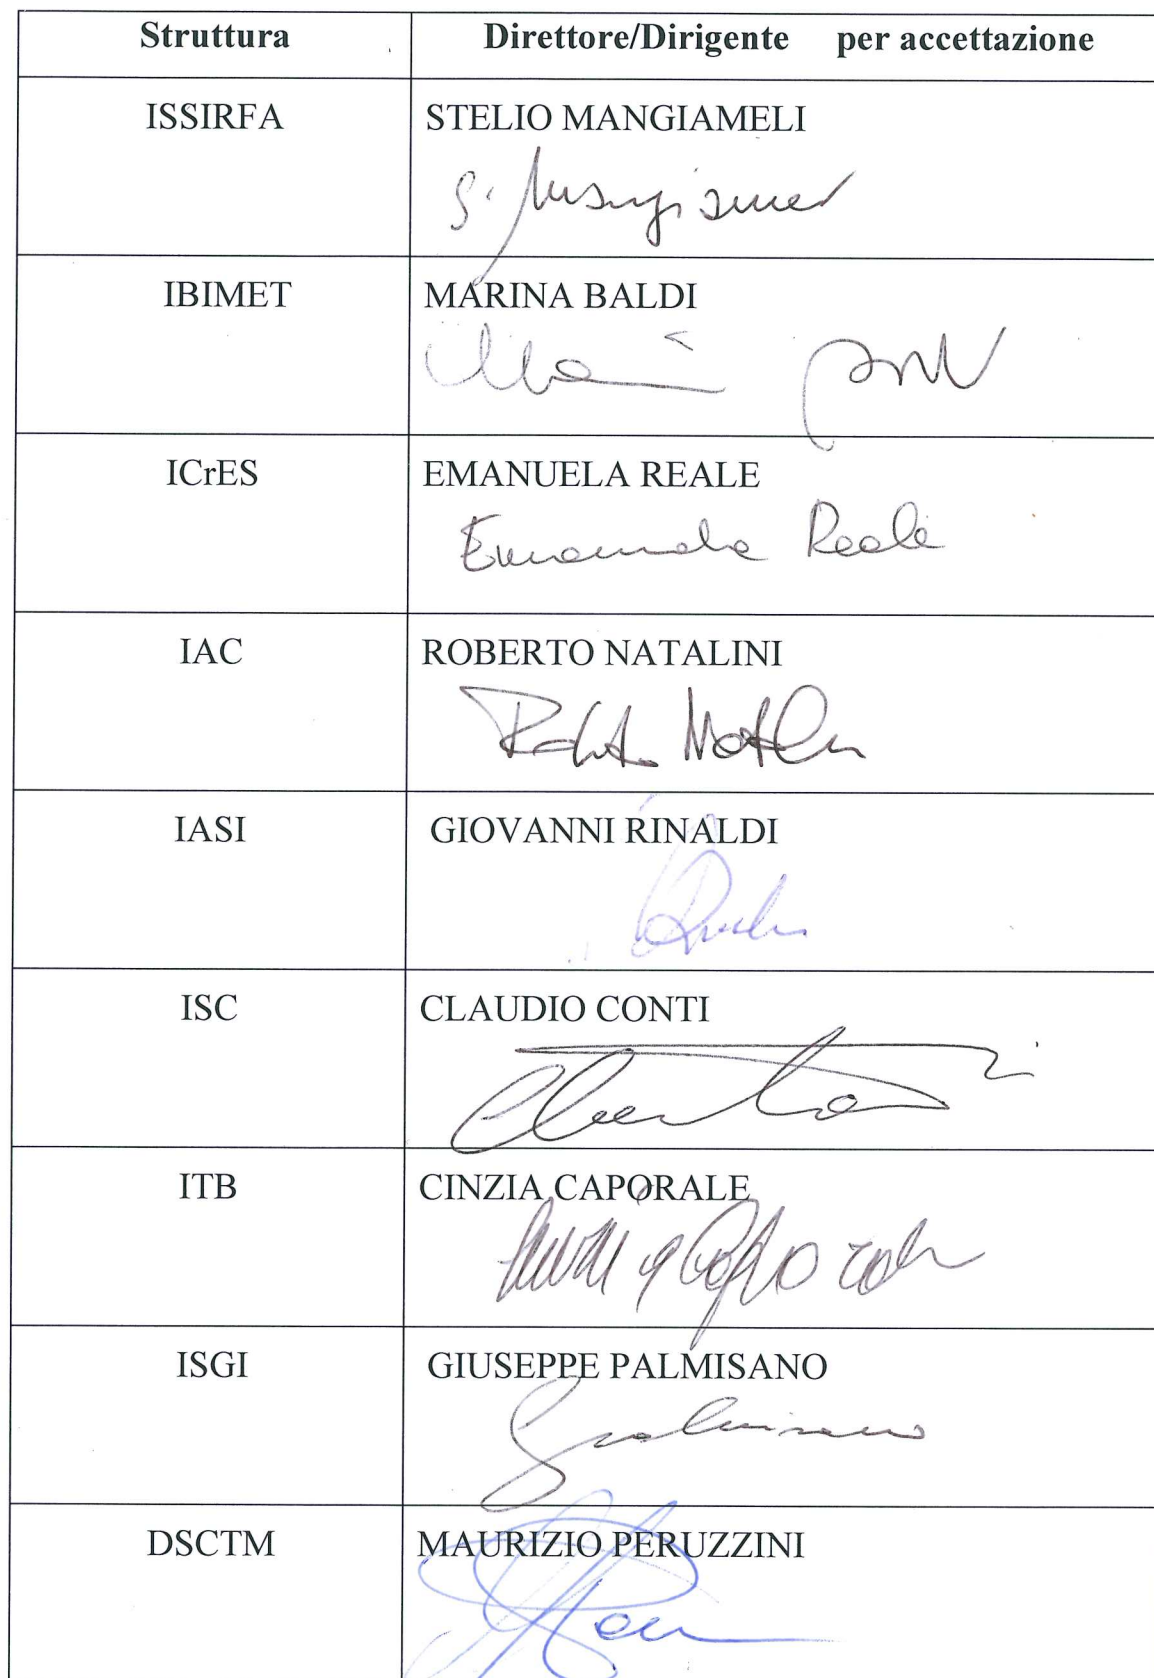 Struttura Direttore/Dirigente per accettazione
ISSIRFA STELIO MANGIAMELI
S. Mangiameli
IBIMET MARINA BALDI
ICrES EMANUELA REALE
Emanuela Reale
IAC ROBERTO NATALINI
IASI GIOVANNI RINALDI
ISC CLAUDIO CONTI
ITB CINZIA CAPORALE
ISGI GIUSEPPE PALMISANO
DSCTM MAURIZIO PERUZZINI